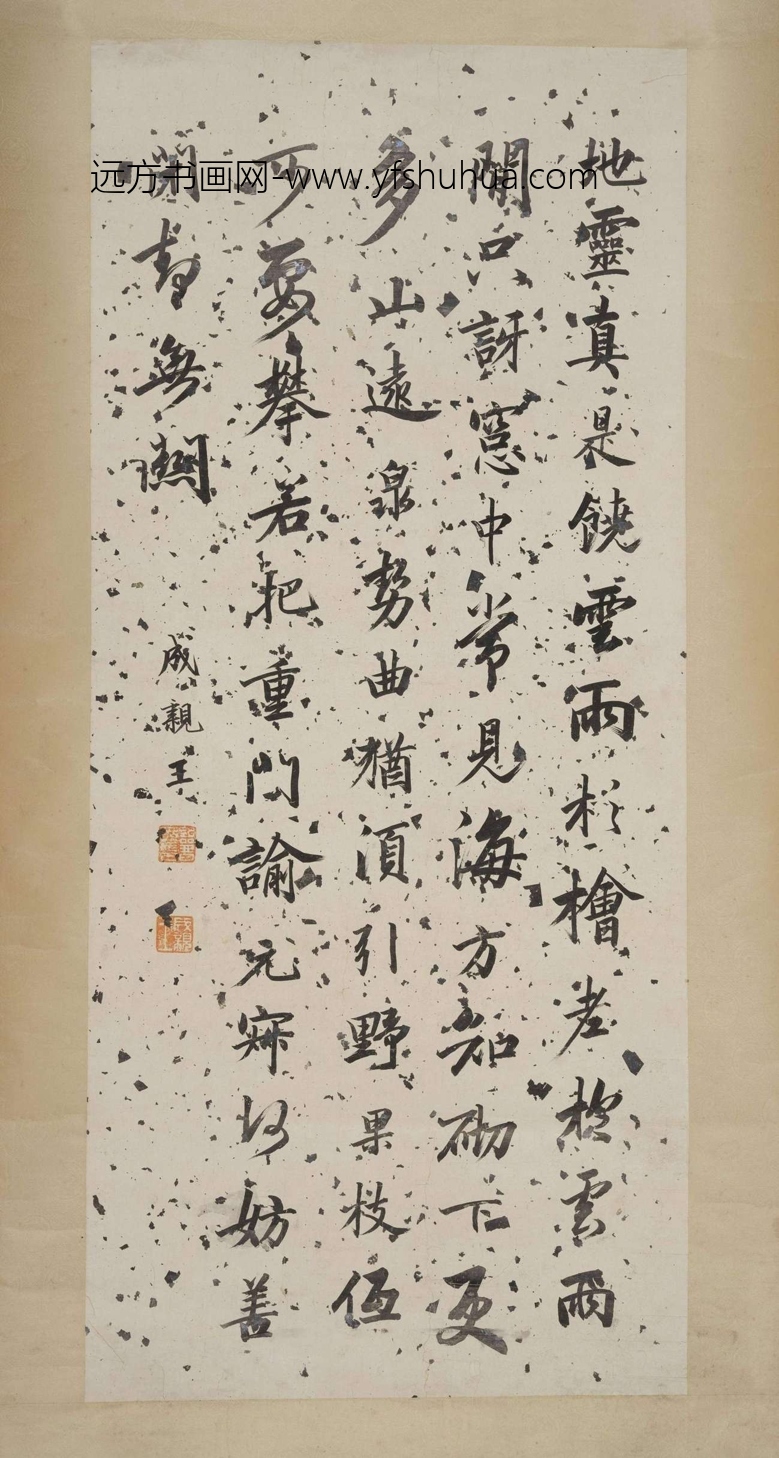 远方书画网-www.yfshuhua.com
地靈真是饒雲雨杉檜老於雲雨
間只訝窓中常見海方知砌下更
多山遠泉勢曲猶須引野果枝低
可要攀若把重門諭元寂何妨善
閉却無關
成親王
成親王